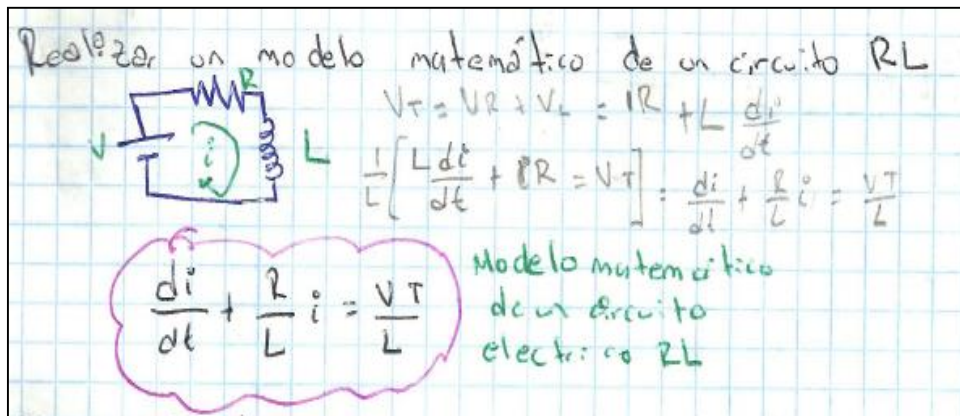 Realizar un modelo matemático de un circuito RL
R
V
i
L
VT = VR + VL = iR + L di/dt
1/L [L di/dt + iR = VT] = di/dt + R/L i = VT/L
di/dt + R/L i = VT/L
Modelo matemático
de un circuito
electrico RL